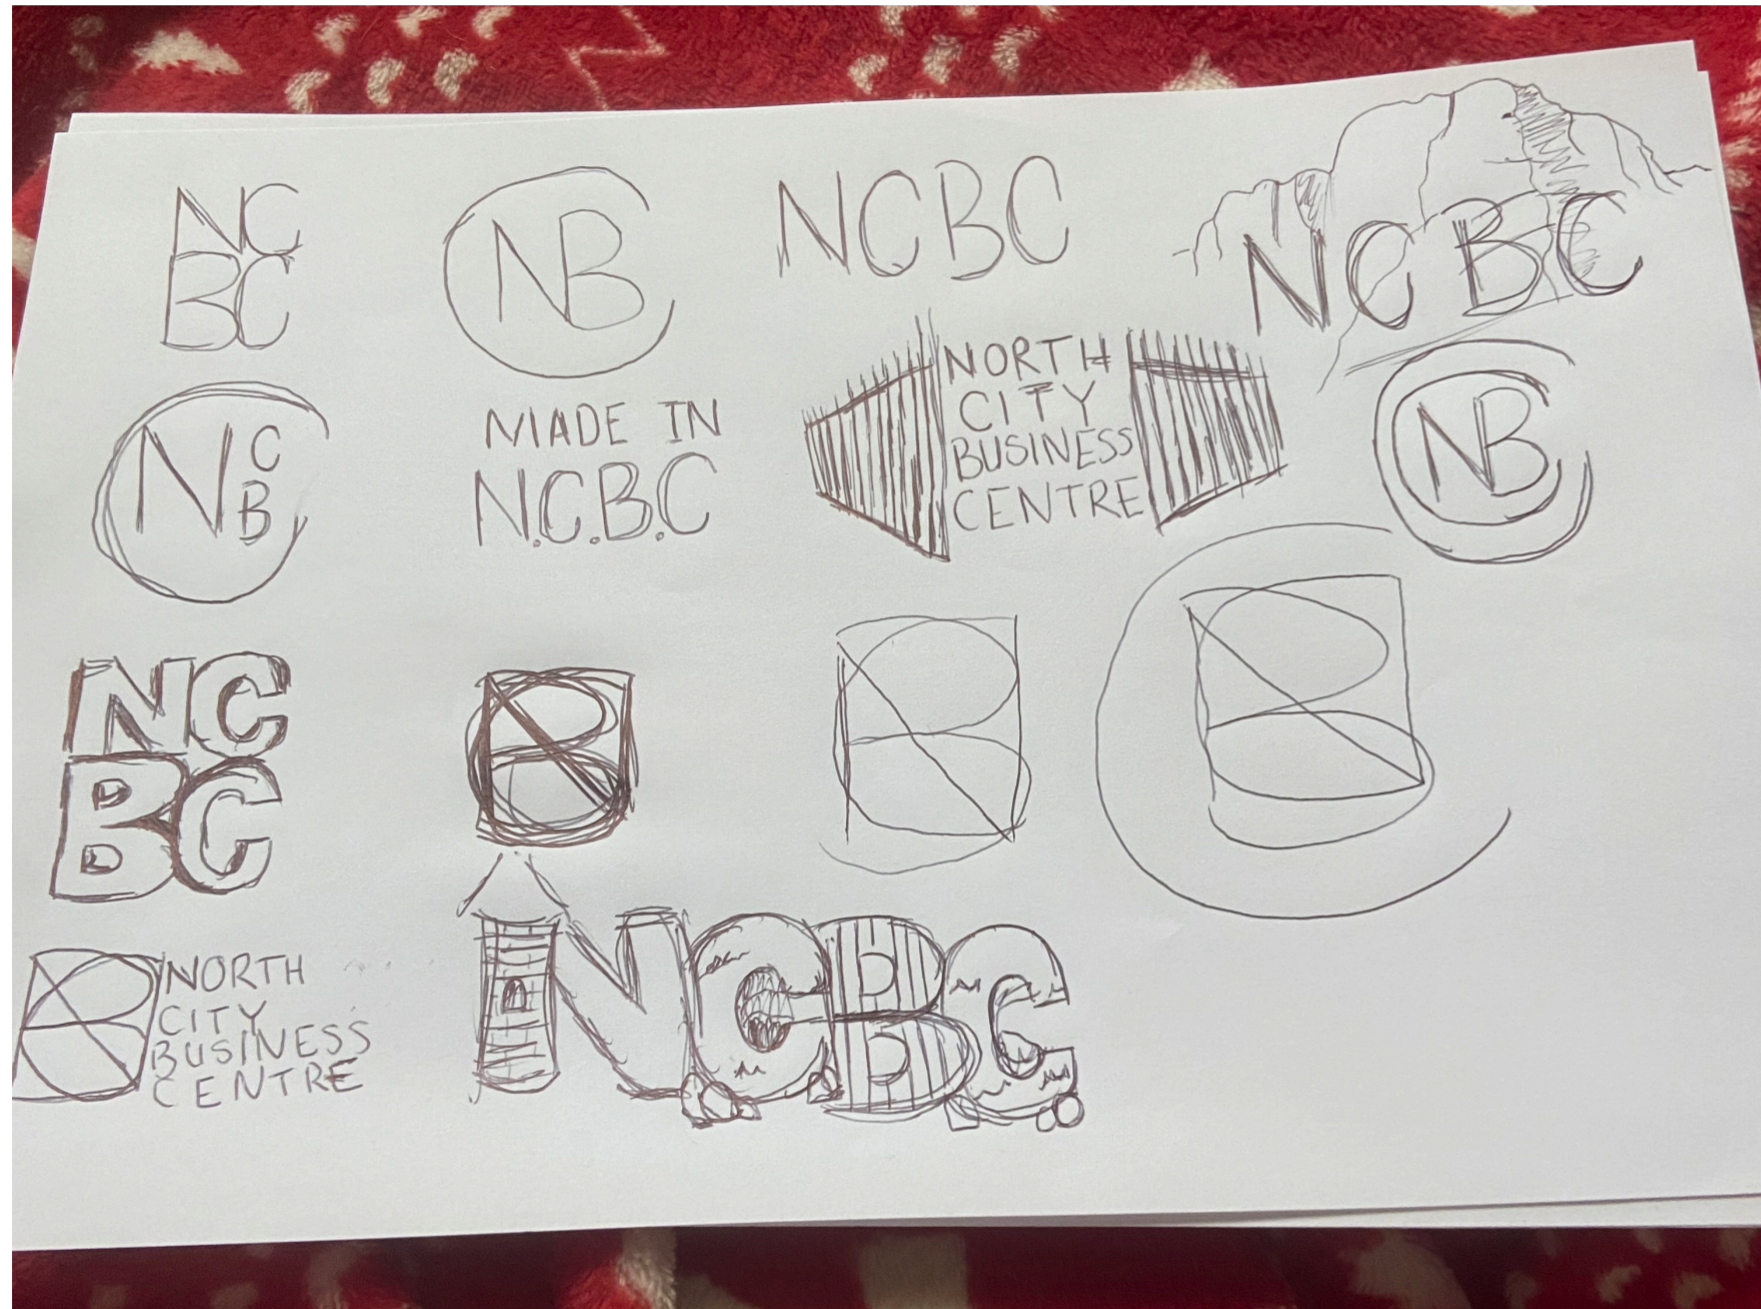 NC
BC
NB
NCBC
NCBC
N C
B
MADE IN
N.C.B.C
NORTH
CITY
BUSINESS
CENTRE
NB
NC
BC
NORTH
CITY
BUSINESS
CENTRE
NCBC